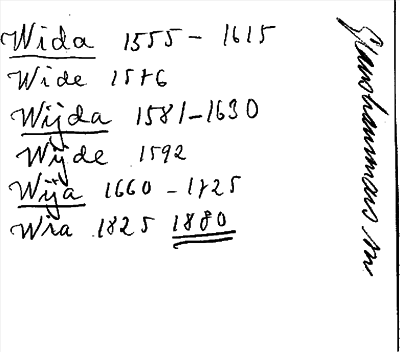 Wida 1555 - 1615
Wide 1576
Wijda 1581-1630
Wijde 1592
Wija 1660 - 1725
Wia 1825 1880
Glanshammars sn